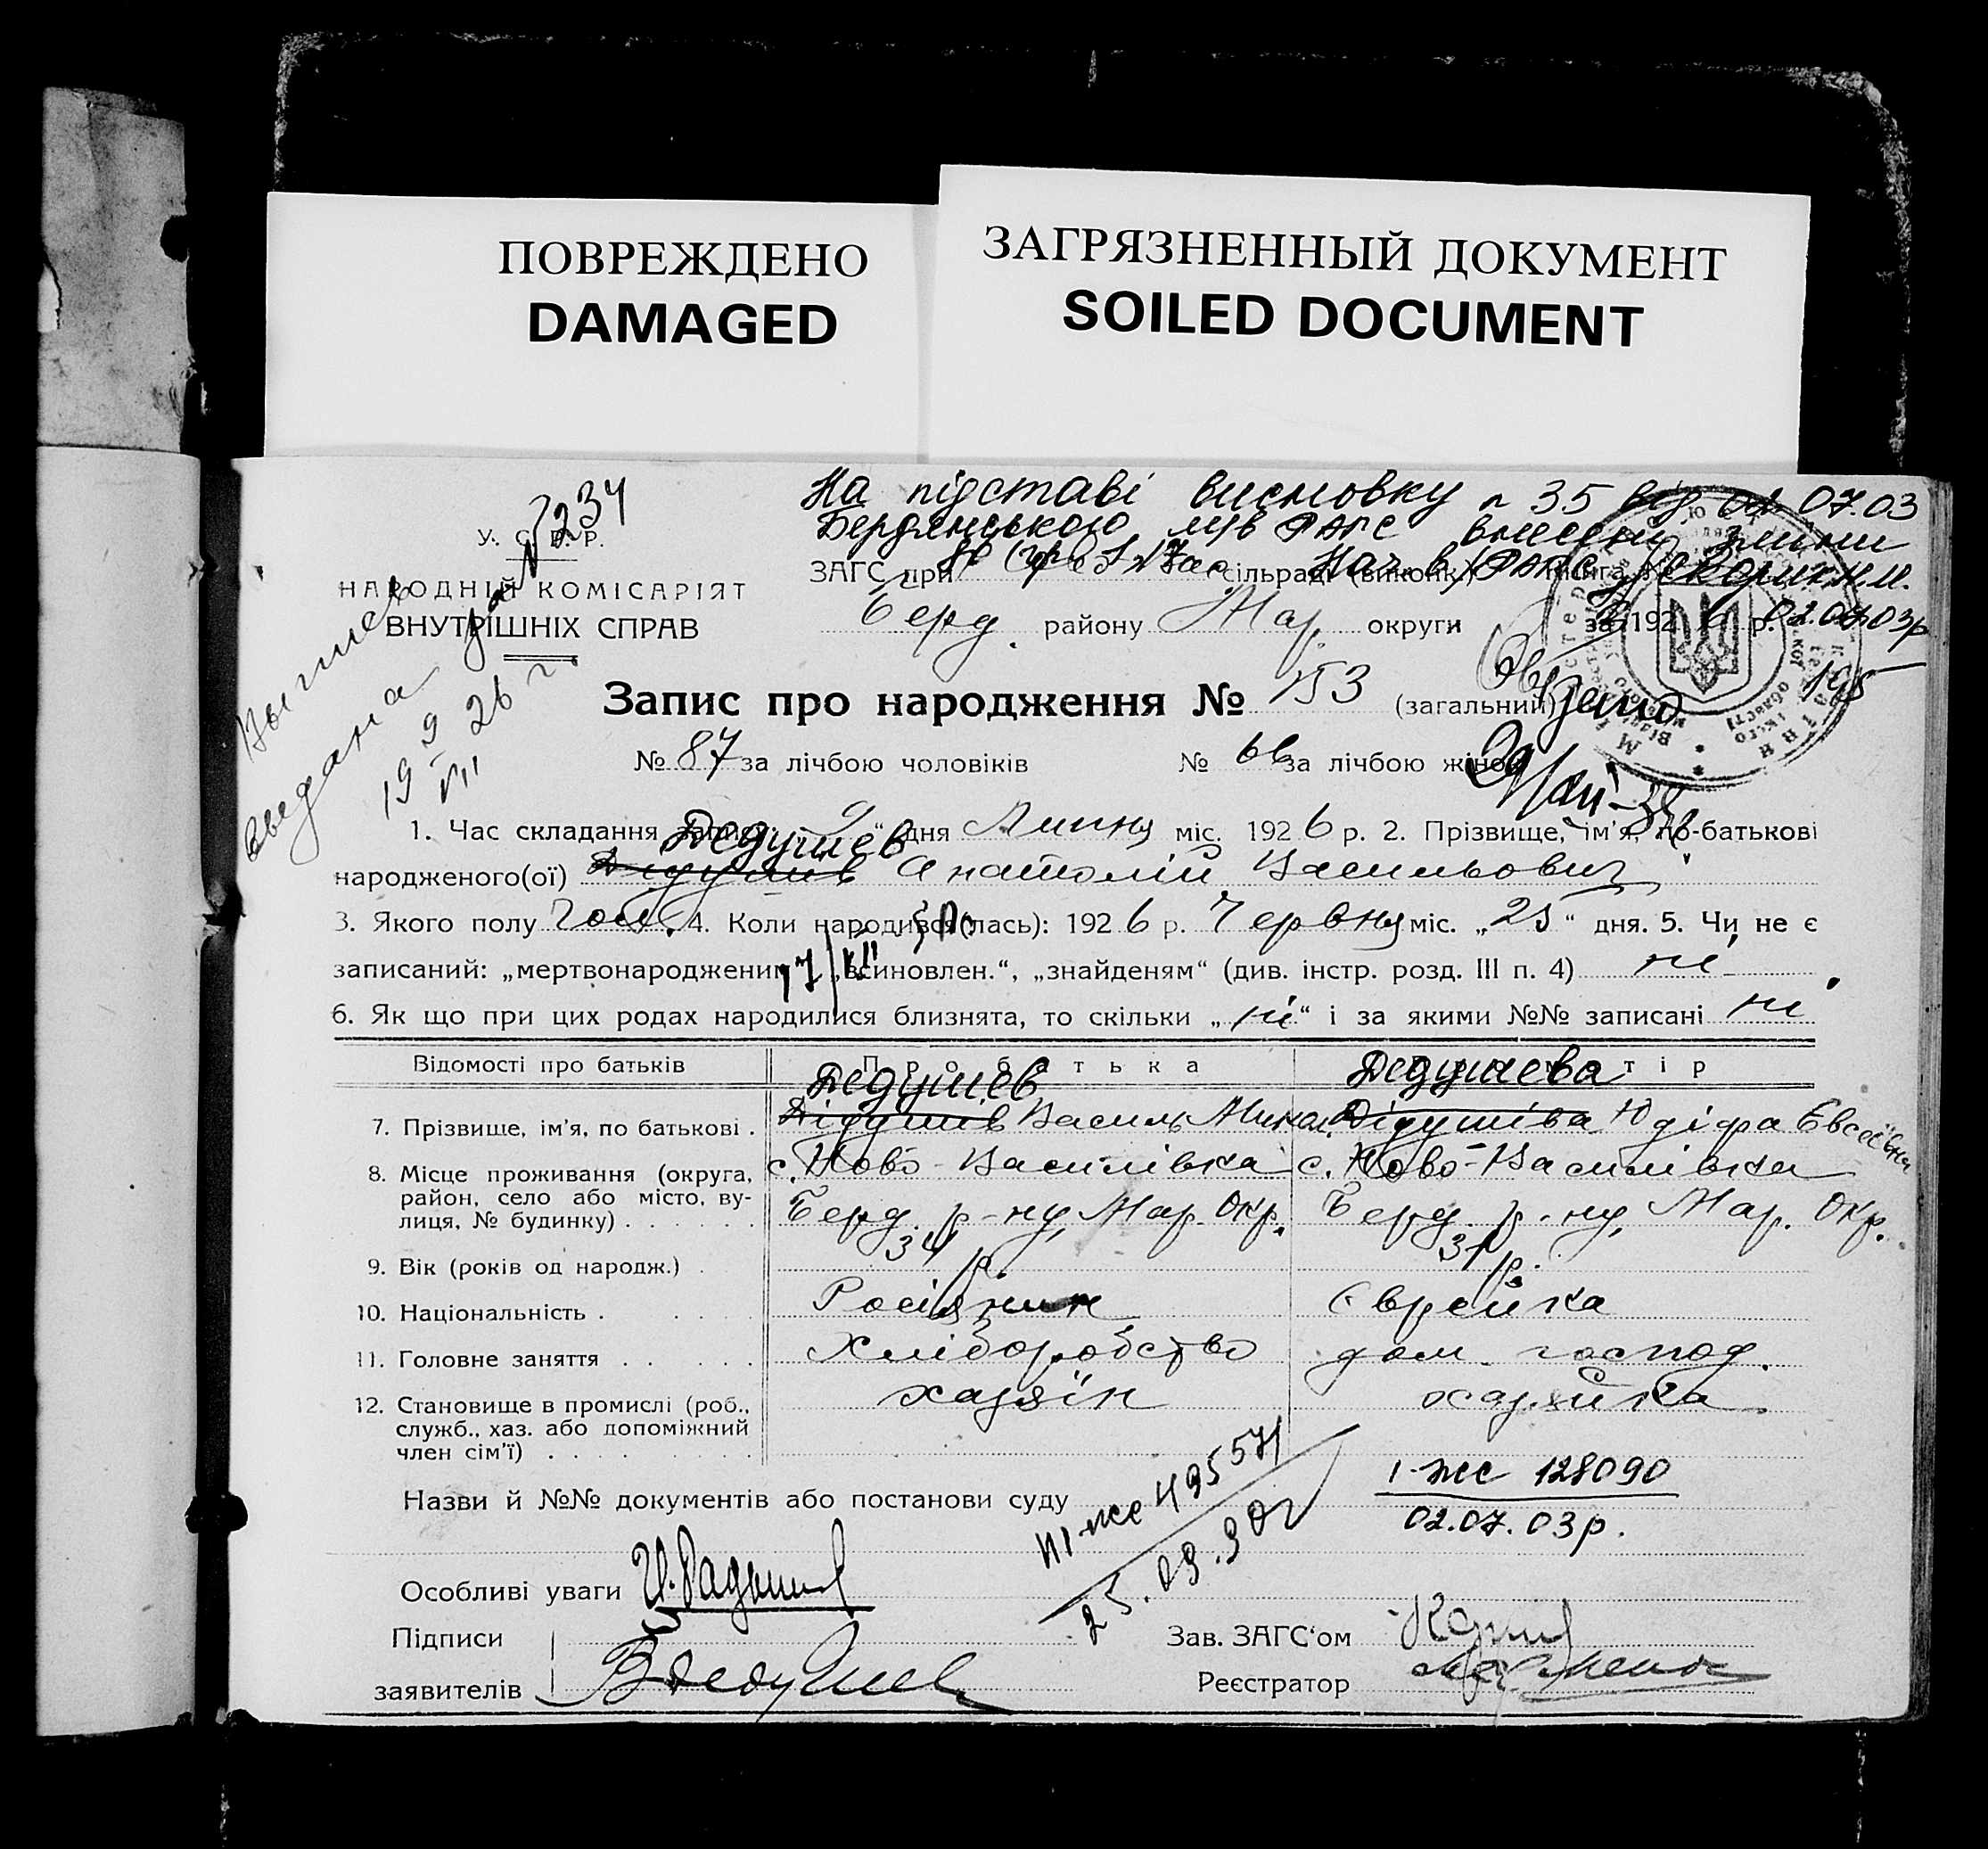 ПОВРЕЖДЕНО
DAMAGED
ЗАГРЯЗНЕННЫЙ ДОКУМЕНТ
SOILED DOCUMENT
На підставі висновку n 35 від 02.07.03
Бердянського РАГС внесені зміни
У. С. Р. Р.
№ 234
НАРОДНІЙ КОМІСАРІЯТ
ВНУТРІШНІХ СПРАВ
ЗАГС при сільраді (виконк.) Нач. в. РАГС Книга №
Берд. району Мар. округи за 192 6 р. 02.07.03р
Запис про народження № 153 (загальний)
195
№ 87 за лічбою чоловіків № 66 за лічбою жінок
Выпись
выдана
19 9/VII 26 г
1. Час складання запису „ 9 “ дня Липня міс. 192 6 р. 2. Прізвище, ім'я, по-батькові
Дедушев
народженого(ої) Дідушів Анатолій Васильович
3. Якого полу Чол. 4. Коли народився(лась): 192 6 р. Червня міс. „ 25 “ дня. 5. Чи не є
записаний: „мертвонародженим“, „всиновлен.“, „знайденям“ (див. інстр. розд. III п. 4) ні
6. Як що при цих родах народилися близнята, то скільки „ ні “ і за якими №№ записані ні
Відомості про батьків Про батька Про матір
Дедушев Дедушева
7. Прізвище, ім'я, по батькові . Дідушів Василь Микол. Дідушіва Юдіфа Євсеївна
8. Місце проживання (округа, с. Ново-Василівка с. Ново-Василівка
район, село або місто, ву-
лиця, № будинку) . . . . . . Берд. р-ну, Мар. Окр. Берд. р-ну, Мар. Окр.
9. Вік (років од народж.) . 34 р. 31 р.
10. Національність . . . . . Росіянин Єврейка
11. Головне заняття . . . . . Хліборобство дом. господ.
12. Становище в промислі (роб., хазяїн хазяйка
служб., хаз. або допоміжний
член сім'ї) . . . . . . . .
Назви й №№ документів або постанови суду
III-жс 495571
25.09.90г
I-жс 128090
02.07.03р.
Особливі уваги
Підписи
заявителів ВДедушев
Зав. ЗАГС'ом
Реєстратор